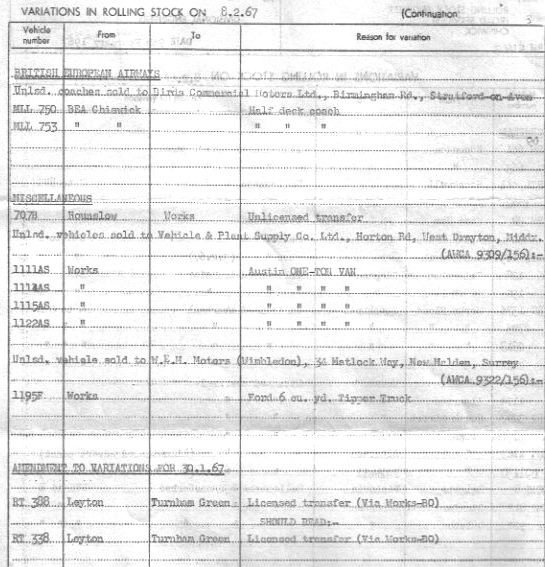 VARIATIONS IN ROLLING STOCK ON 8.2.67 (Continuation) 3
Vehicle number From To Reason for variation
BRITISH EUROPEAN AIRWAYS
Unlsd. coaches sold to Birds Commercial Motors Ltd., Birmingham Rd., Stratford-on-Avon
MLL 750 BEA Chiswick Half deck coach
MLL 753 " " " " "
MISCELLANEOUS
707B Hounslow Works Unlicensed transfer
Unlsd. vehicles sold to Vehicle & Plant Supply Co. Ltd., Horton Rd, West Drayton, Middx.
(AWCA 9309/156):-
1111AS Works Austin ONE-TON VAN
1114AS " " " " "
1115AS " " " " "
1122AS " " " " "
Unlsd. vehicle sold to W.E.H. Motors (Wimbledon), 34 Matlock Way, New Malden, Surrey
(AWCA 9322/156):-
1195F Works Ford 6 cu. yd. Tipper Truck
AMENDMENT TO VARIATIONS FOR 30.1.67
RT 388 Leyton Turnham Green Licensed transfer (Via Works-BO)
SHOULD READ:-
RT 338 Leyton Turnham Green Licensed transfer (Via Works-BO)